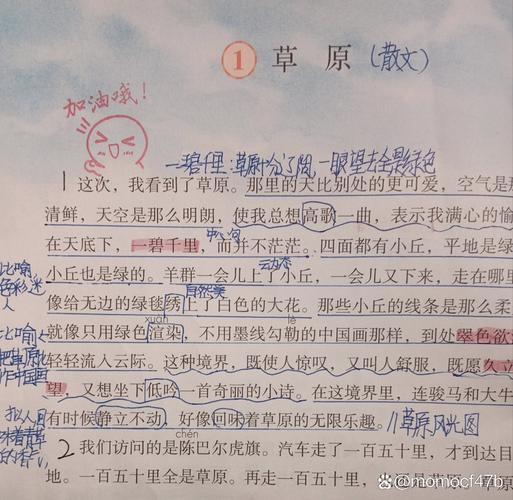 1 草原 (散文)
加油哦！
一碧千里：草原十分辽阔，一眼望去全是绿色
1 这次，我看到了草原。那里的天比别处的更可爱，空气是那
清鲜，天空是那么明朗，使我总想高歌一曲，表示我满心的愉
中心句
在天底下，一碧千里，而并不茫茫。四面都有小丘，平地是绿
动态
小丘也是绿的。羊群一会儿上了小丘，一会儿又下来，走在哪里
比喻
色彩迷
人
自然美
像给无边的绿毯绣上了白色的大花。那些小丘的线条是那么柔
xuàn
lè
就像只用绿色渲染，不用墨线勾勒的中国画那样，到处翠色欲
比喻
把草原比
作中国画
轻轻流入云际。这种境界，既使人惊叹，又叫人舒服，既愿久立
望，又想坐下低吟一首奇丽的小诗。在这境界里，连骏马和大牛
拟人
有时候静立不动，好像回味着草原的无限乐趣。//草原风光图
chén
2 我们访问的是陈巴尔虎旗。汽车走了一百五十里，才到达目
地。一百五十里全是草原。再走一百五十里，
@momocf47b